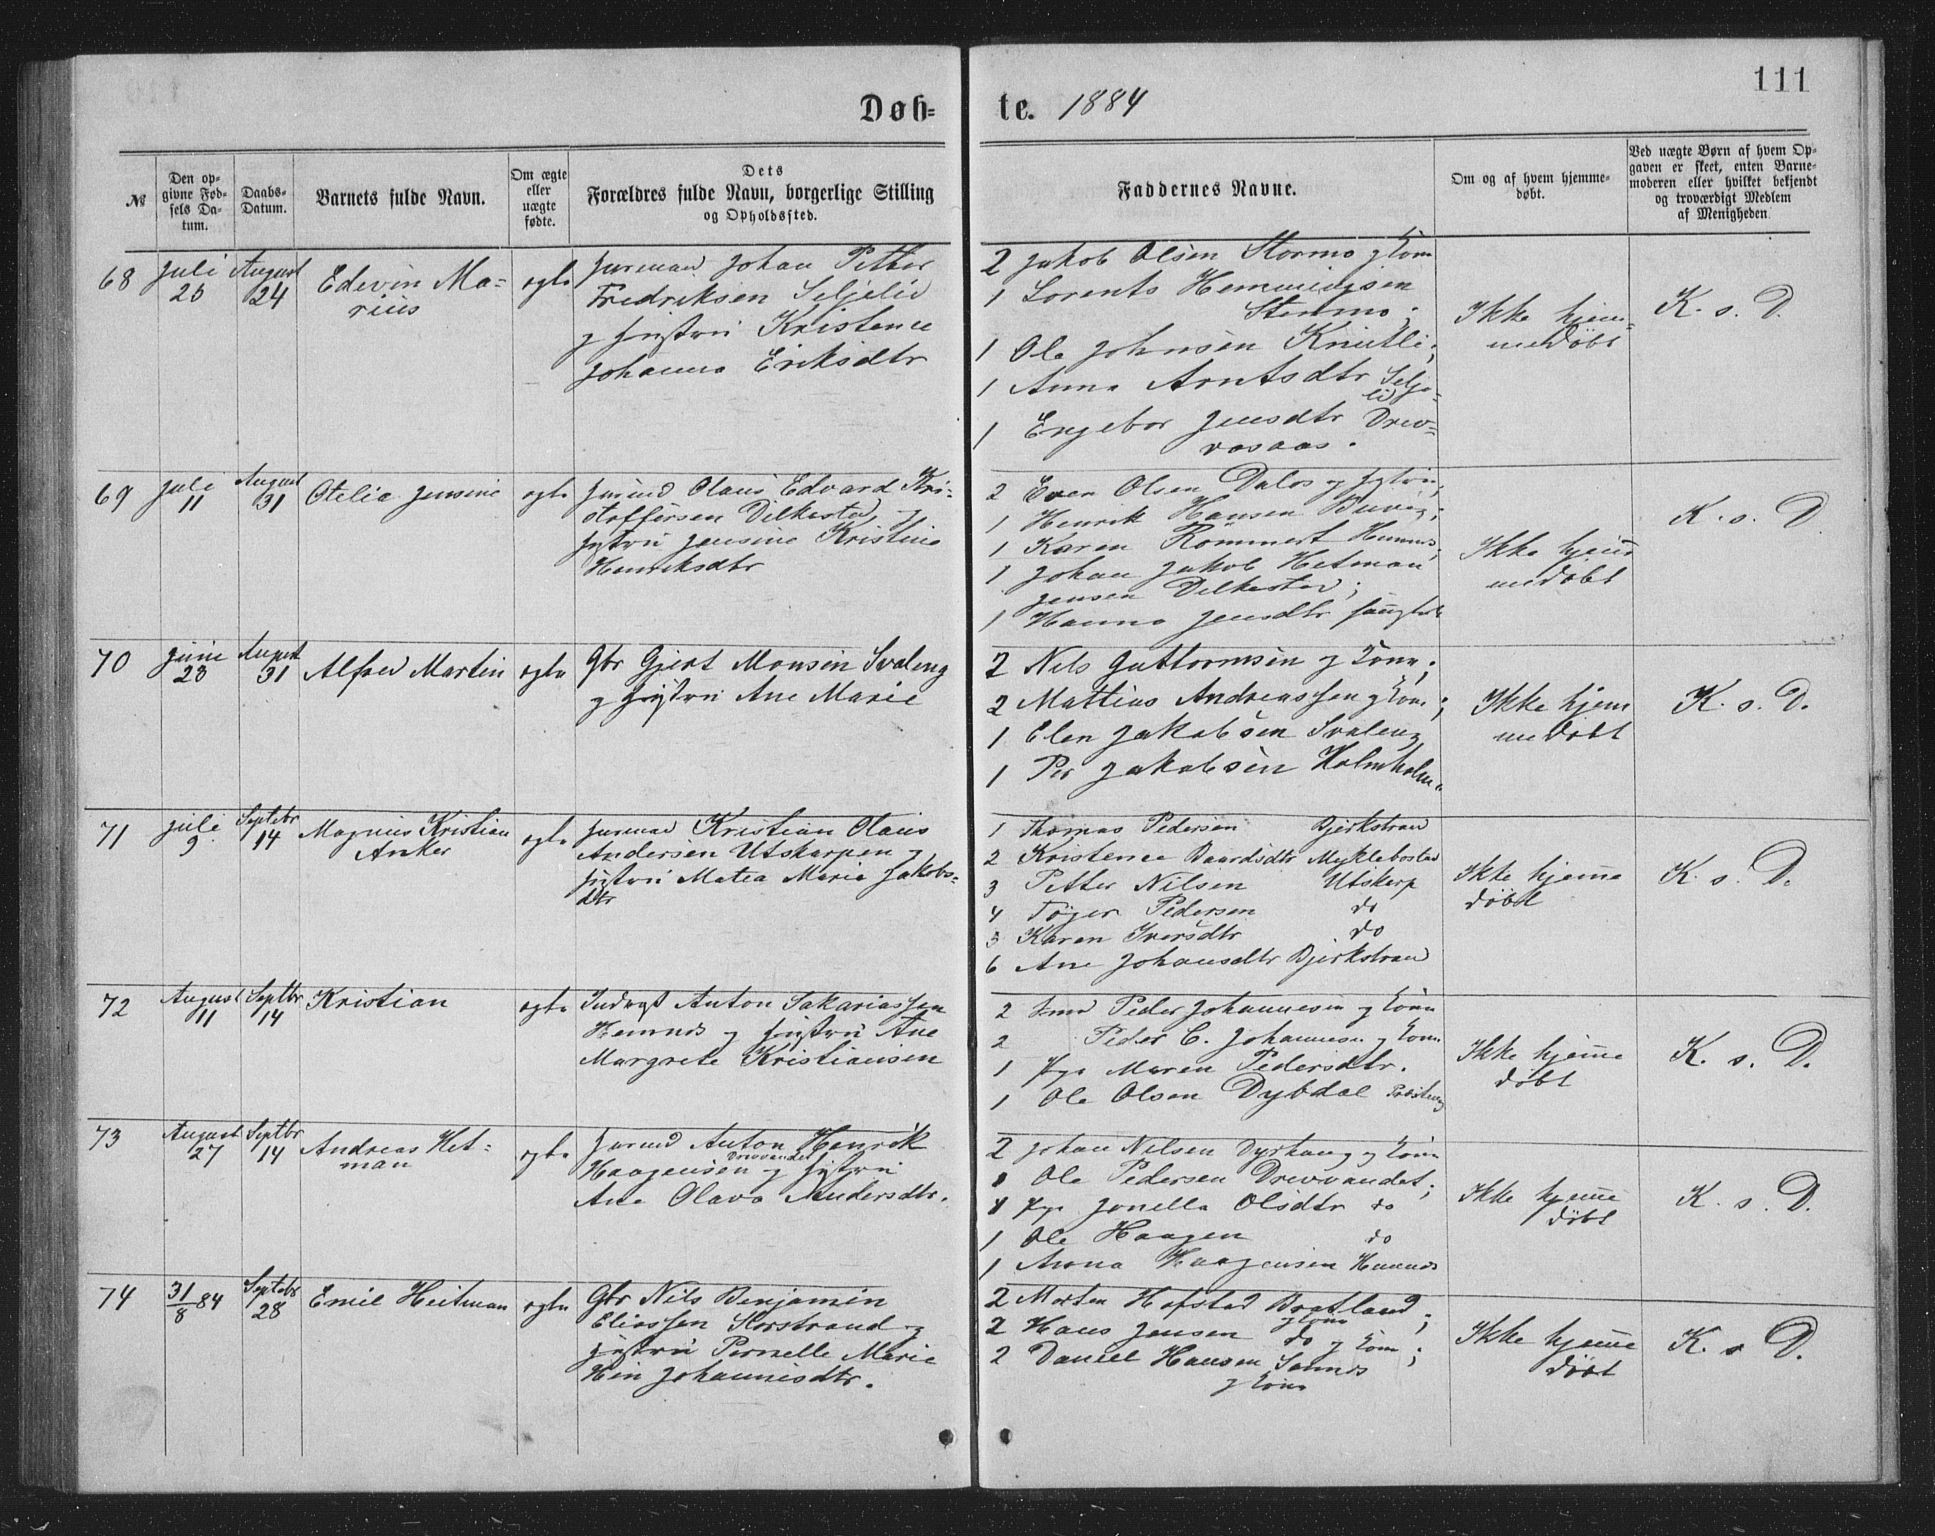 111
Døb-
te. 1884
№
Den op-
givne Fød-
sels Da-
tum.
Daabs-
Datum.
Barnets fulde Navn.
Om ægte
eller
uægte
fødte.
Dets
Forældres fulde Navn, borgerlige Stilling
og Opholdssted.
Faddernes Navne.
Om og af hvem hjemme-
døbt.
Ved uægte Børn af hvem Op-
gaven er skeet, enten Barne-
moderen eller hvilket bekjendt
og troværdigt Medlem
af Menigheden
68
Juli
26
August
24
Edevin Ma-
rius
ægte
Johan Petter
Fredriksen Seljelid
og Kristence
Johanna Eriksdtr
2 Jakob Olsen Stormo og Kone
1 Lorents Hemmingsen
Stormo;
1 Ole Johnsen Knutli;
1 Anna Arntsdtr Selje-
lid
1 Engebor Jensdtr Drev-
vasaas.
Ikke hjem-
medøbt
K. s. D.
69
Juli
11
August
31
Otelia Jensine
ægte
Olaus Edvard Kri-
stoffersen Dilkestad og
Jensine Kristine
Henriksdtr
2 Even Olsen Dalos og
1 Henrik Hansen
1 Karen Rømmert Hemnes;
1 Johan Jakob Hetman
Jensen Dilkestad;
1 Hanna Jensdtr
Ikke hjem
medøbt
K. s. D.
70
Juni
23
August
31
Alfred Martin
ægte
Gbr Gjert Monsen Svaleng
og Ane Marie
2 Nils Guttormsen og Kone;
2 Mattias Andreassen og Kone;
1 Elen Jakobsen Svaleng
1 Per Jakobsen Holmholm
Ikke hjem
medøbt
K. s. D.
71
Juli
9
Septebr
14
Magnus Kristian
Anker
ægte
Kristian Olaus
Andersen Utskarpen og
Matea Marie Jakobs-
dtr
1 Thomas Pedersen Bjerkstrand
2 Kristence Baardsdtr Myklebostad
3 Petter Nilsen Utskarp
4 Tøger Pedersen do
5 Karen Iversdtr do
6 Ane Johansdtr Bjerkstrand
Ikke hjemme
døbt
K. s. D.
72
August
11
Septbr
14
Kristian
ægte
Anton Sakariassen
Hemnes og Ane
Margrete Kristiansen
2 Peder Johannesen og Kone
2 Peder C. Johannesen og Kone
1 Pge Maren Pedersdtr.
1 Ole Olsen Dybdal
Ikke hjemme
døbt
K. s. D.
73
August
27
Septbr
14
Andreas Het-
man
ægte
Anton Henrik
Drevvandet
Haagensen og
Ane Olava Andersdtr.
2 Johan Nilsen Dyrhaug og Kone
1 Ole Pedersen Drevvandet;
1 Pge Jonella Olsdtr do
1 Ole Haagen do
1 Anna Haagensen Hemnes
Ikke hjemme
døbt
K. s. D.
74
31/8 84
Septebr
28
Emil Heitman
ægte
Gbr Nils Benjamin
Eliassen Korstrand og
Pernelle Marie
Johannesdtr.
2 Morten Hofstad Bratland
og Kone;
2 Hans Jensen do og Kone;
2 Daniel Hansen
og Kone
Ikke hjemme
døbt
K. s. D.